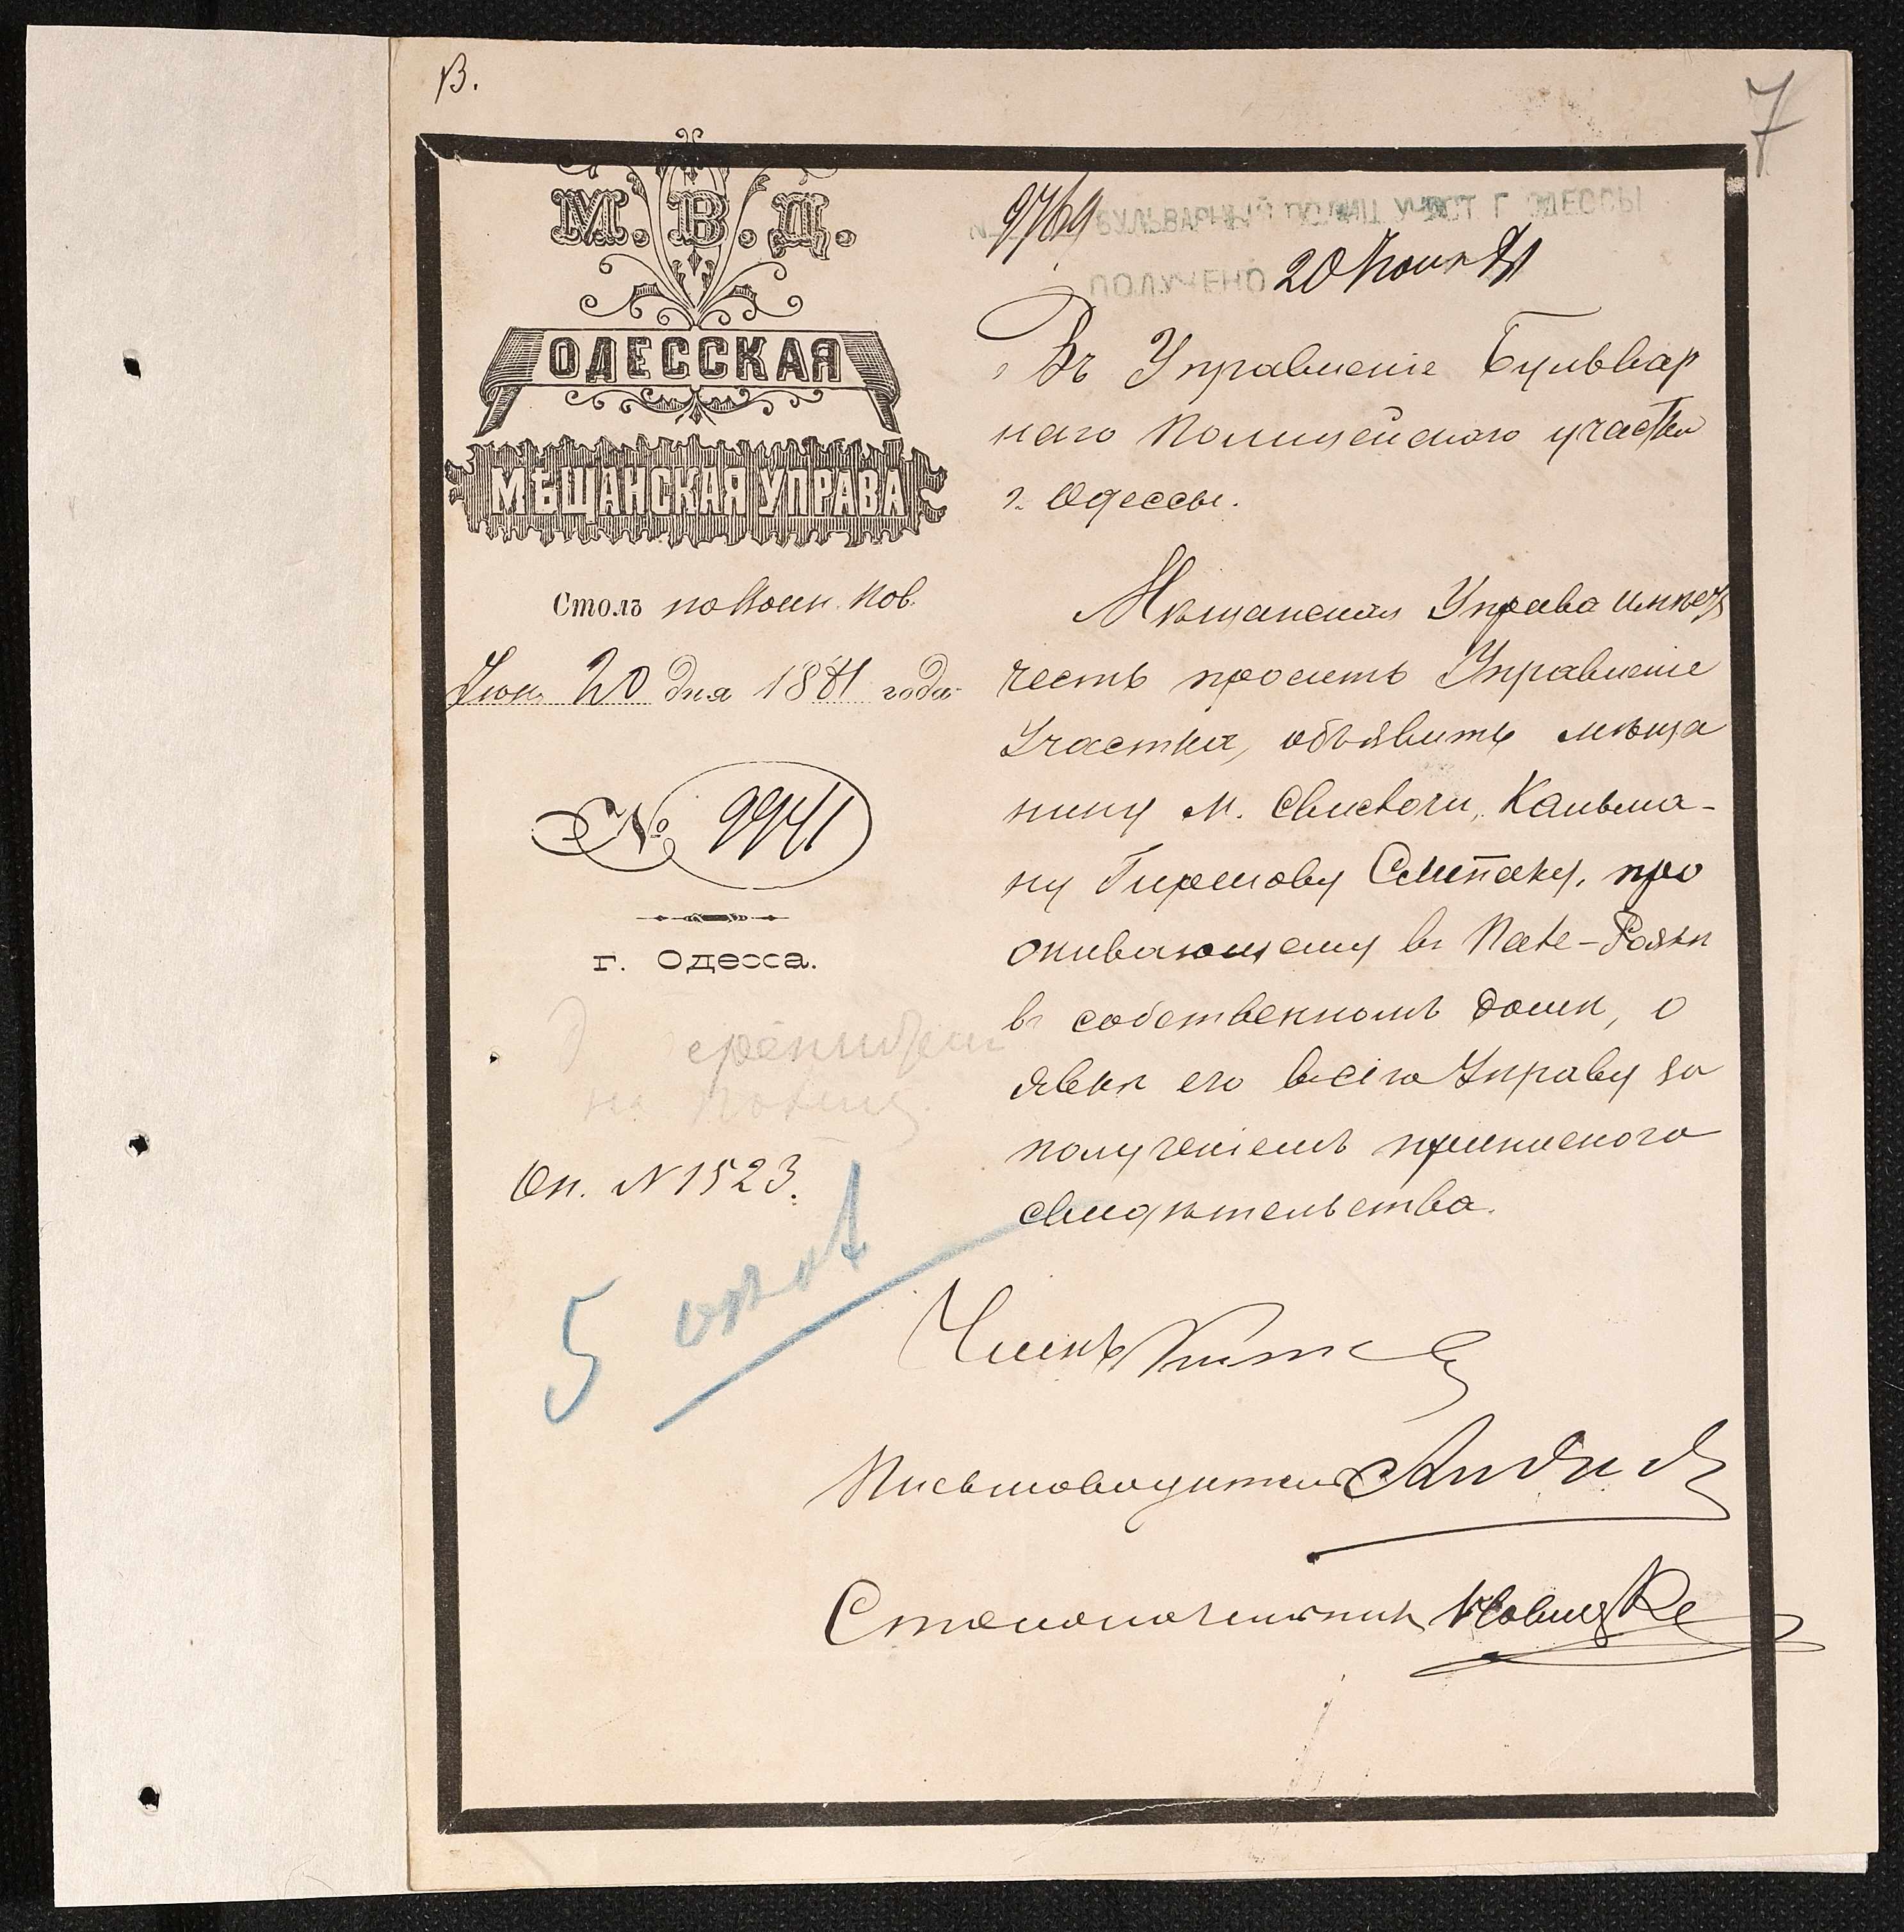 В.
7
М. В. Д.
ОДЕССКАЯ
МѢЩАНСКАЯ УПРАВА
Столъ по Воин. Пов.
Іюн. 20 дня 1881 года
№ 9941
г. Одесса.
Оп. N 1523.
5
№ 9769 БУЛЬВАРНЫЙ ПОЛИЦ. УЧАСТ. Г. ОДЕССЫ
ПОЛУЧЕНО 20 Іюня 81
Въ Управленіе Бульвар
наго Полицейскаго участка
г. Одессы.
Мѣщанская Управа имѣетъ
честь просить Управленіе
Участка, объявить мѣща
нину м. Кальма-
ну про
живающему въ Пале-Роялѣ
въ собственномъ домѣ, о
явкѣ его въ сію Управу за
полученіемъ приписного
свидѣтельства.
Членъ
Письмоводитель
Столоначальникъ Новицкі